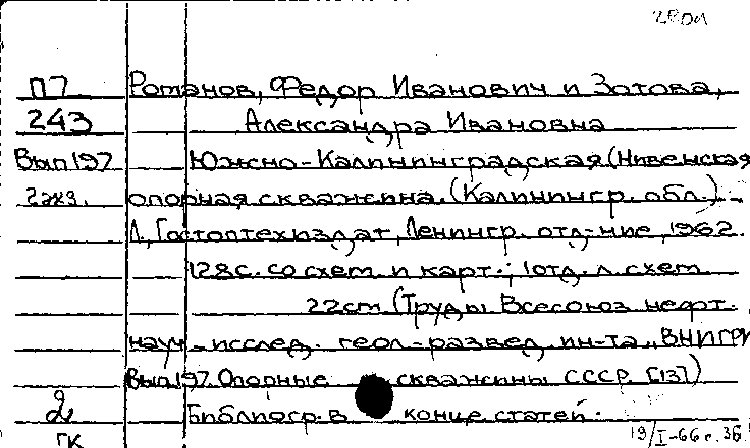 П7 Ротанов, Федор Иванович и Зотова,
243 Александра Ивановна
Вып 197 Южно-Калининградская (Нивенская
2экз. опорная скважина. (Калинингр. обл.) -
Л., Гостоптехиздат, Ленингр. отд-ние, 1962.
128с. со схем. и карт.; 1 отд. л. схем.
22см. (Труды Всесоюз. нефт.
науч.-исслед. геол.-развед. ин-та, ВНИГРИ
Вып 197. Опорные скважины СССР. [13])
2 Библиогр. в конце статей.
ГК 19/I-66г. ЗБ